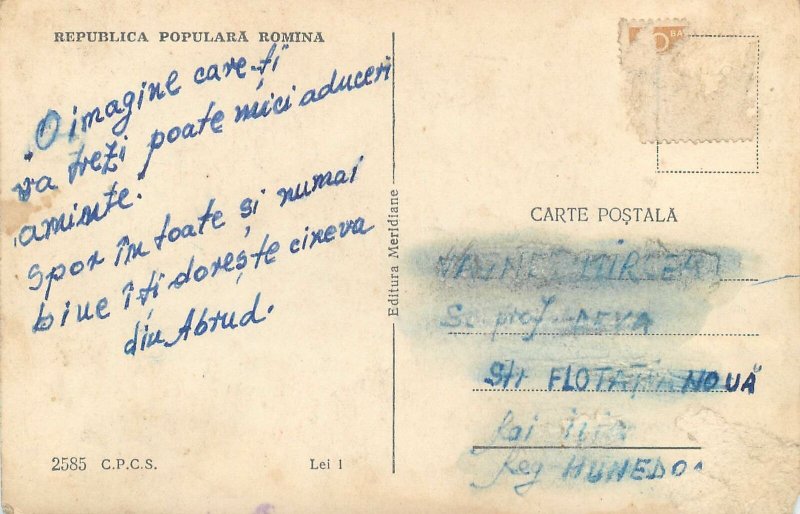 REPUBLICA POPULARĂ ROMINA
"O imagine care-ți
va trezi poate mici aduceri
aminte."
Spor în toate și numai
bine îți dorește cineva
din Abrud.
2585 C.P.C.S.
Lei 1
Editura Meridiane
BA
CARTE POȘTALĂ
MIRCEA
Sc prof DEVA
Str FLOTAȚIA NOUĂ
Reg HUNEDOA